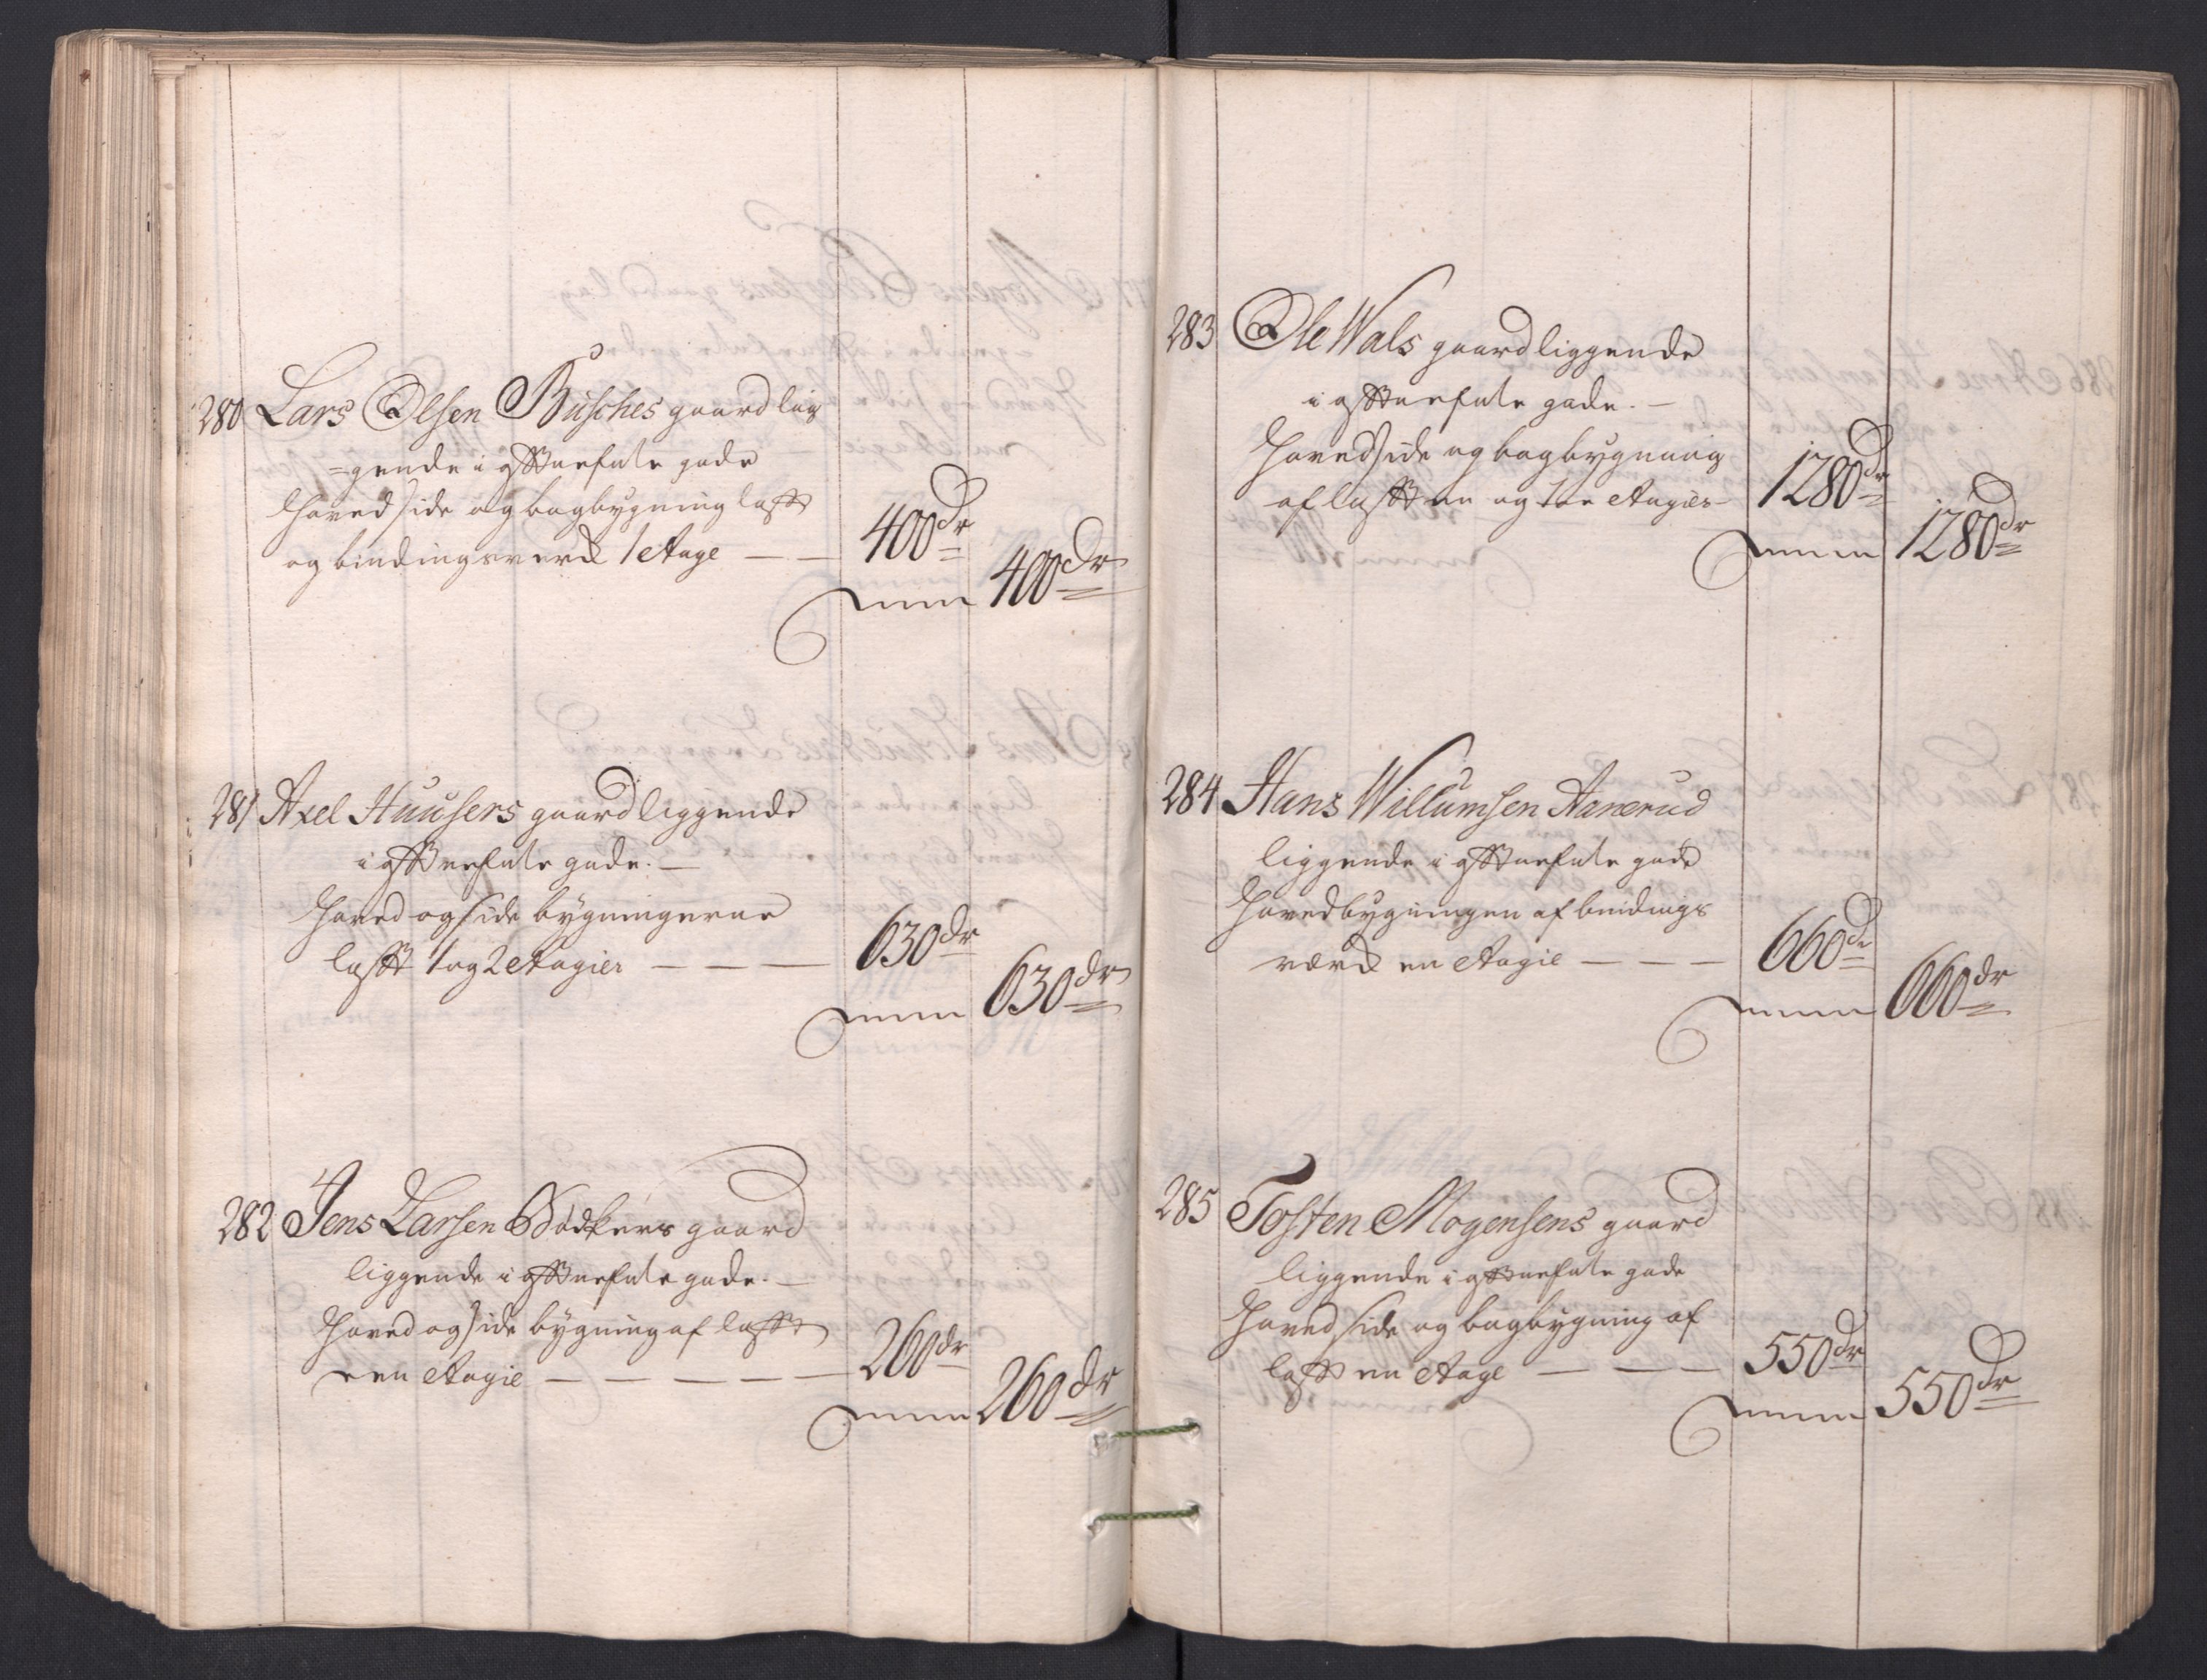 280 Lars Olsen Busches gaard lig
=gende i offtnefnte gade
Hoved side og bagbygning lafft
og bindingsverck 1 etage — — 400 dr
Summa 400 dr
281 Axel Huusers gaard liggende
i offtnefnte gade. —
Hoved og side bygningerne
lafft 1 og 2 etagier — — — 630 dr
Summa 630 dr
282 Jens Larsen Bödkers gaard
liggende i offtnefnte gade. —
Hoved og side bygning af lafft
een etagie — — — — — 260 dr
Summa 260 dr
283 Ole Wals gaard liggende
i offtnefnte gade. —
Hoved side og bagbygning
af lafft en og toe etagier — 1280 dr
Summa 1280 dr
284 Hans Willumsen Aanerud
liggende i offtnefnte gade
Hovedbygningen af bindings
værck en etagie — — — 660 dr
Summa 660 dr
285 Tosten Mogensens gaard
liggende i offtnefnte gade
Hoved side og bagbygning af
lafft en etage — — — 550 dr
Summa 550 dr